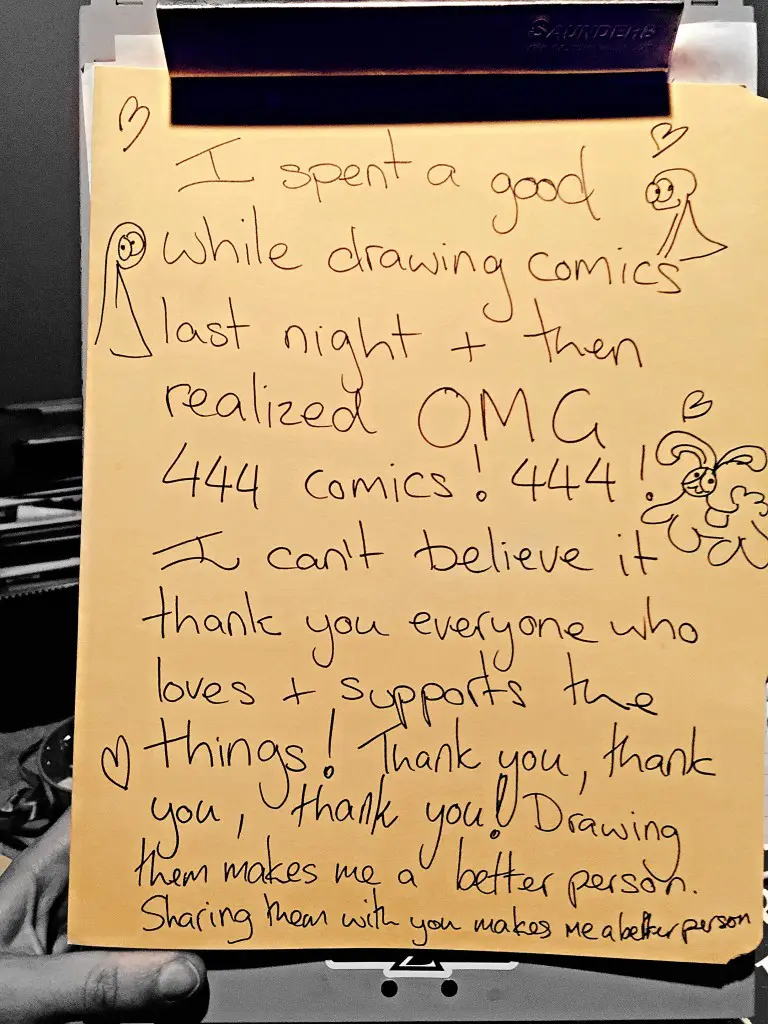 SAUNDERS
I spent a good
while drawing comics
last night + then
realized OMG
444 comics! 444!
I can't believe it
thank you everyone who
loves + supports the
things! Thank you, thank
you, thank you! Drawing
them makes me a better person.
Sharing them with you makes me a better person